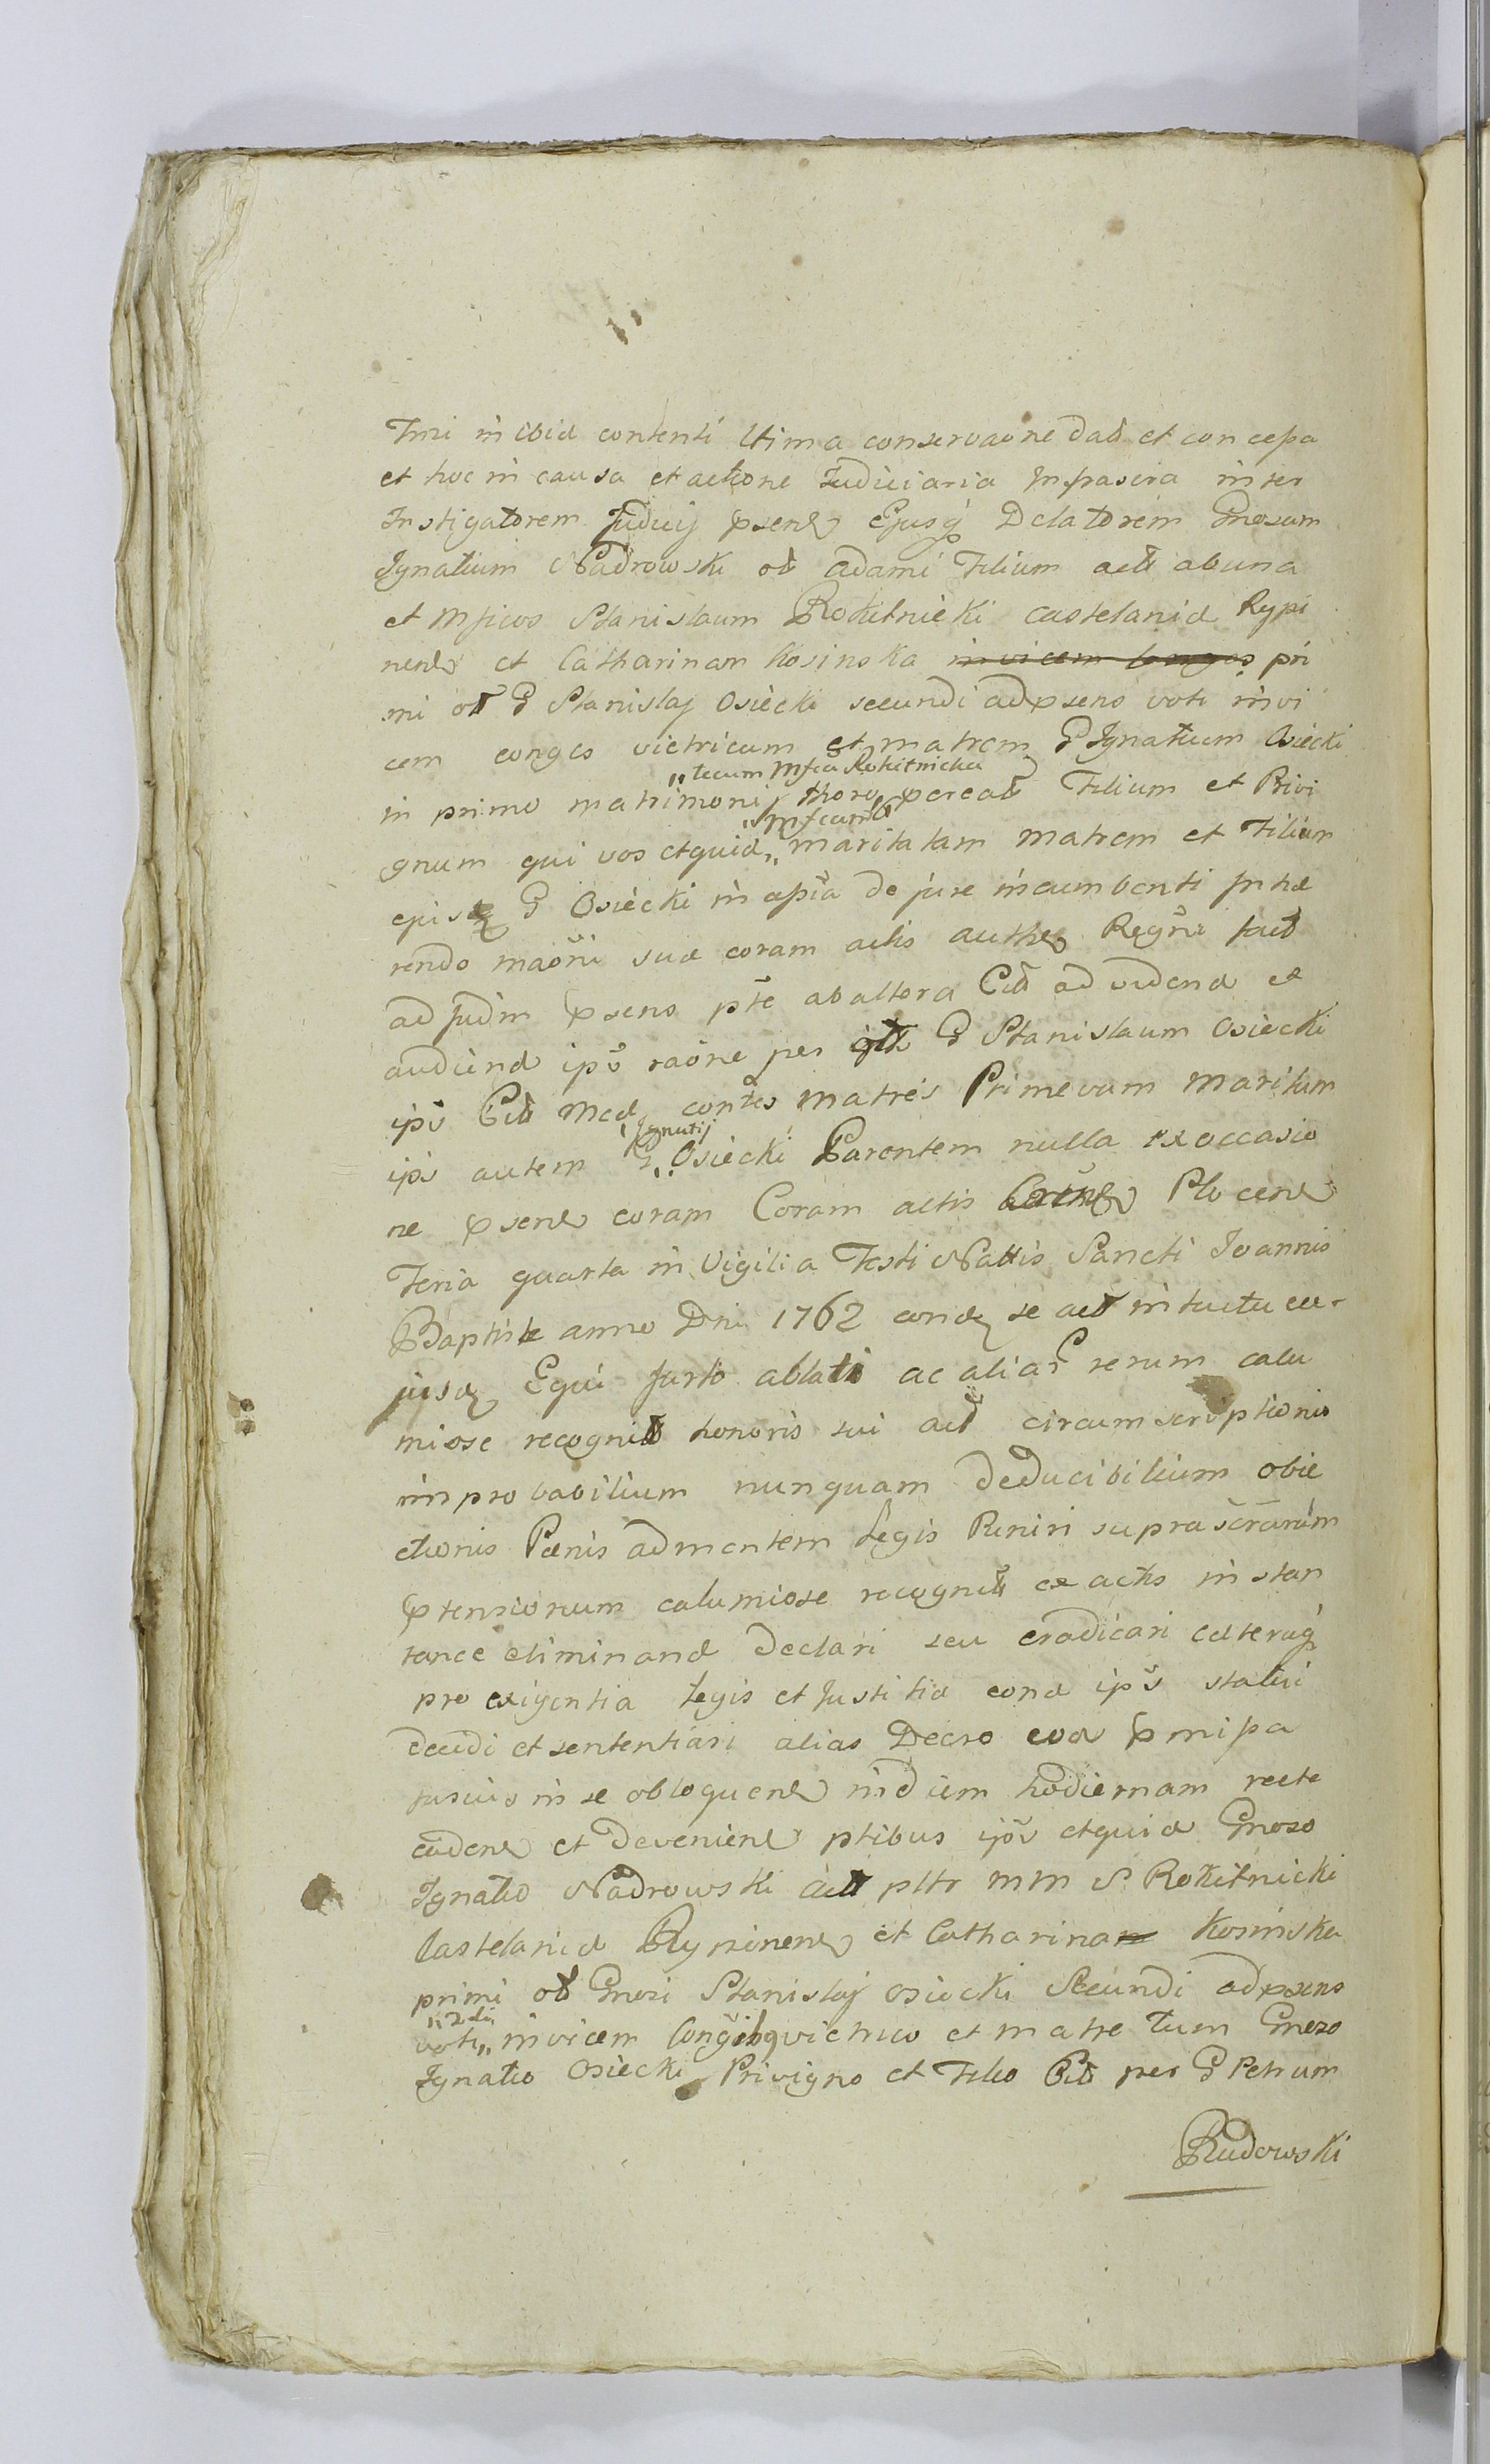 Tmi in ibid contenti ltima conservaõne dað et concepa
et hoc in causa et actione Judiciaria Infrascra inter
Instigatorem Judicij psene Ejusq Delatorem Gnosum
Ignatium Nadrowski ol Adami Filium act ab una
et Mficos Stanislaum Rokitnicki Castelanid Rypi
nene et Catharinam Kosinska invicem conges pri
mi ol G Stanislaj Osiecki secundi ad psens voti invi
cem conges victricum et matrem G Ignatium Osiecki
in primo matrimonij „tecum Mfca Rokitnicka thoro pcreat Filium et Privi
gnum qui vos etquid „Mfcam maritatam matrem et Filium
ejusq G Osiecki in assia de jure incumbenti Inhæ
rendo maõni suæ coram actis authen Regni fact
ad Judm psens pte ab altora Cit ad videnð et
audiend ipõ raõne per G Stanislaum Osiecki
ipõ Cit Med contes matrés Primevum maritum
ipõ autem G „Ignatij Osiecki Parentem nulla ex occasio
ne psene coram Coram actis Plocene
Feria quarta in Vigilia Festi Nattis Sancti Joannis
Baptiste anno Dni 1762 cond se act intuitu cu-
jusd Equi furto ablati ac aliar rerum calu
miose recognit honoris sui act circumscriptionis
improbabilium nunquam deducibilium obie
ctionis Pænis ad mentem Legis Puniri suprascrarum
ptensionum calumiose recognit ex actis instan
tance eliminand Declari seu eradicari cæteraq
pro exigentia Legis et Justitiæ cond ipõ statui
decidi et sententiari alias Decro eod pmipa
jusius in se obloquene in diem hodiernam recte
cadene et deveniene ptibus ipõ etquid Gnoso
Ignatio Nadrowski act pltr MM S Rokitnicki
Castelanid Rypinene et Catharina Kosinska
primi ol Gnosi Stanislaj Osiecki Secundi ad psens
voti „2di invicem Congibq victrico et matre tum Gnoso
Ignatio Osiecki Privigno et Filio Cit per G Petrum
Rudowski